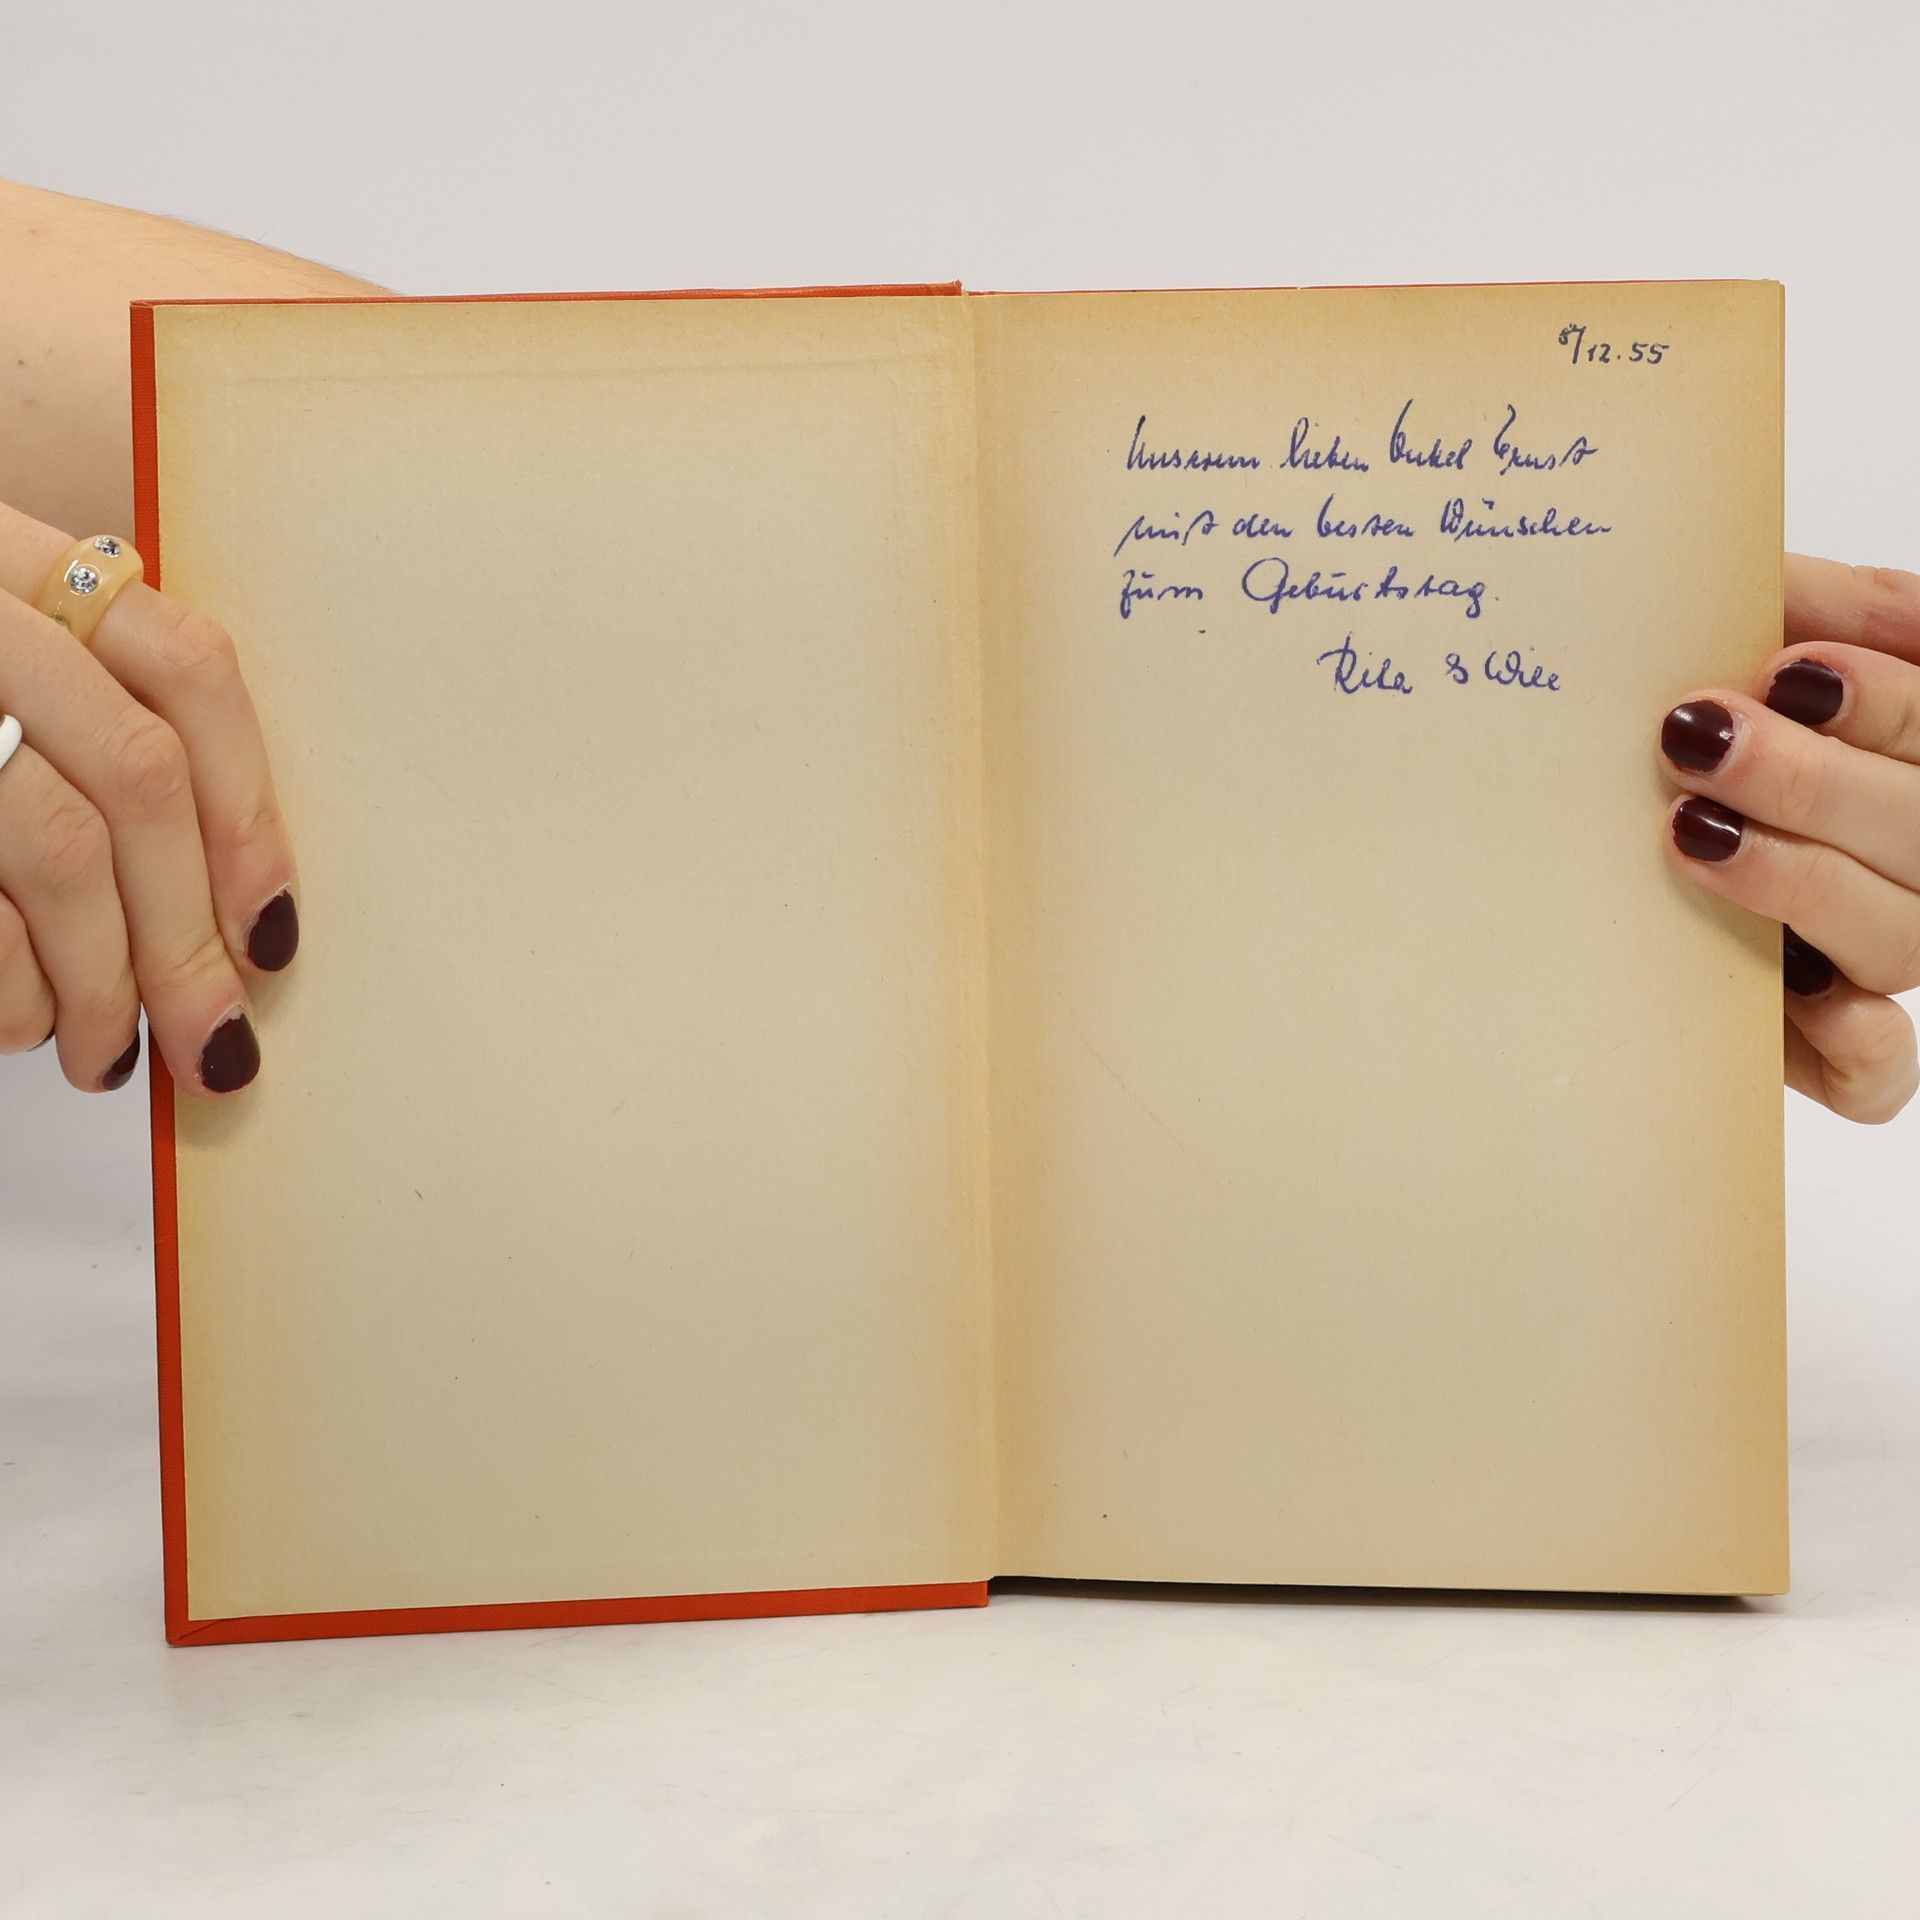 5/12.55
Unserem lieben Onkel Ernst
mit den besten Wünschen
zum Geburtstag.
Rita & Will